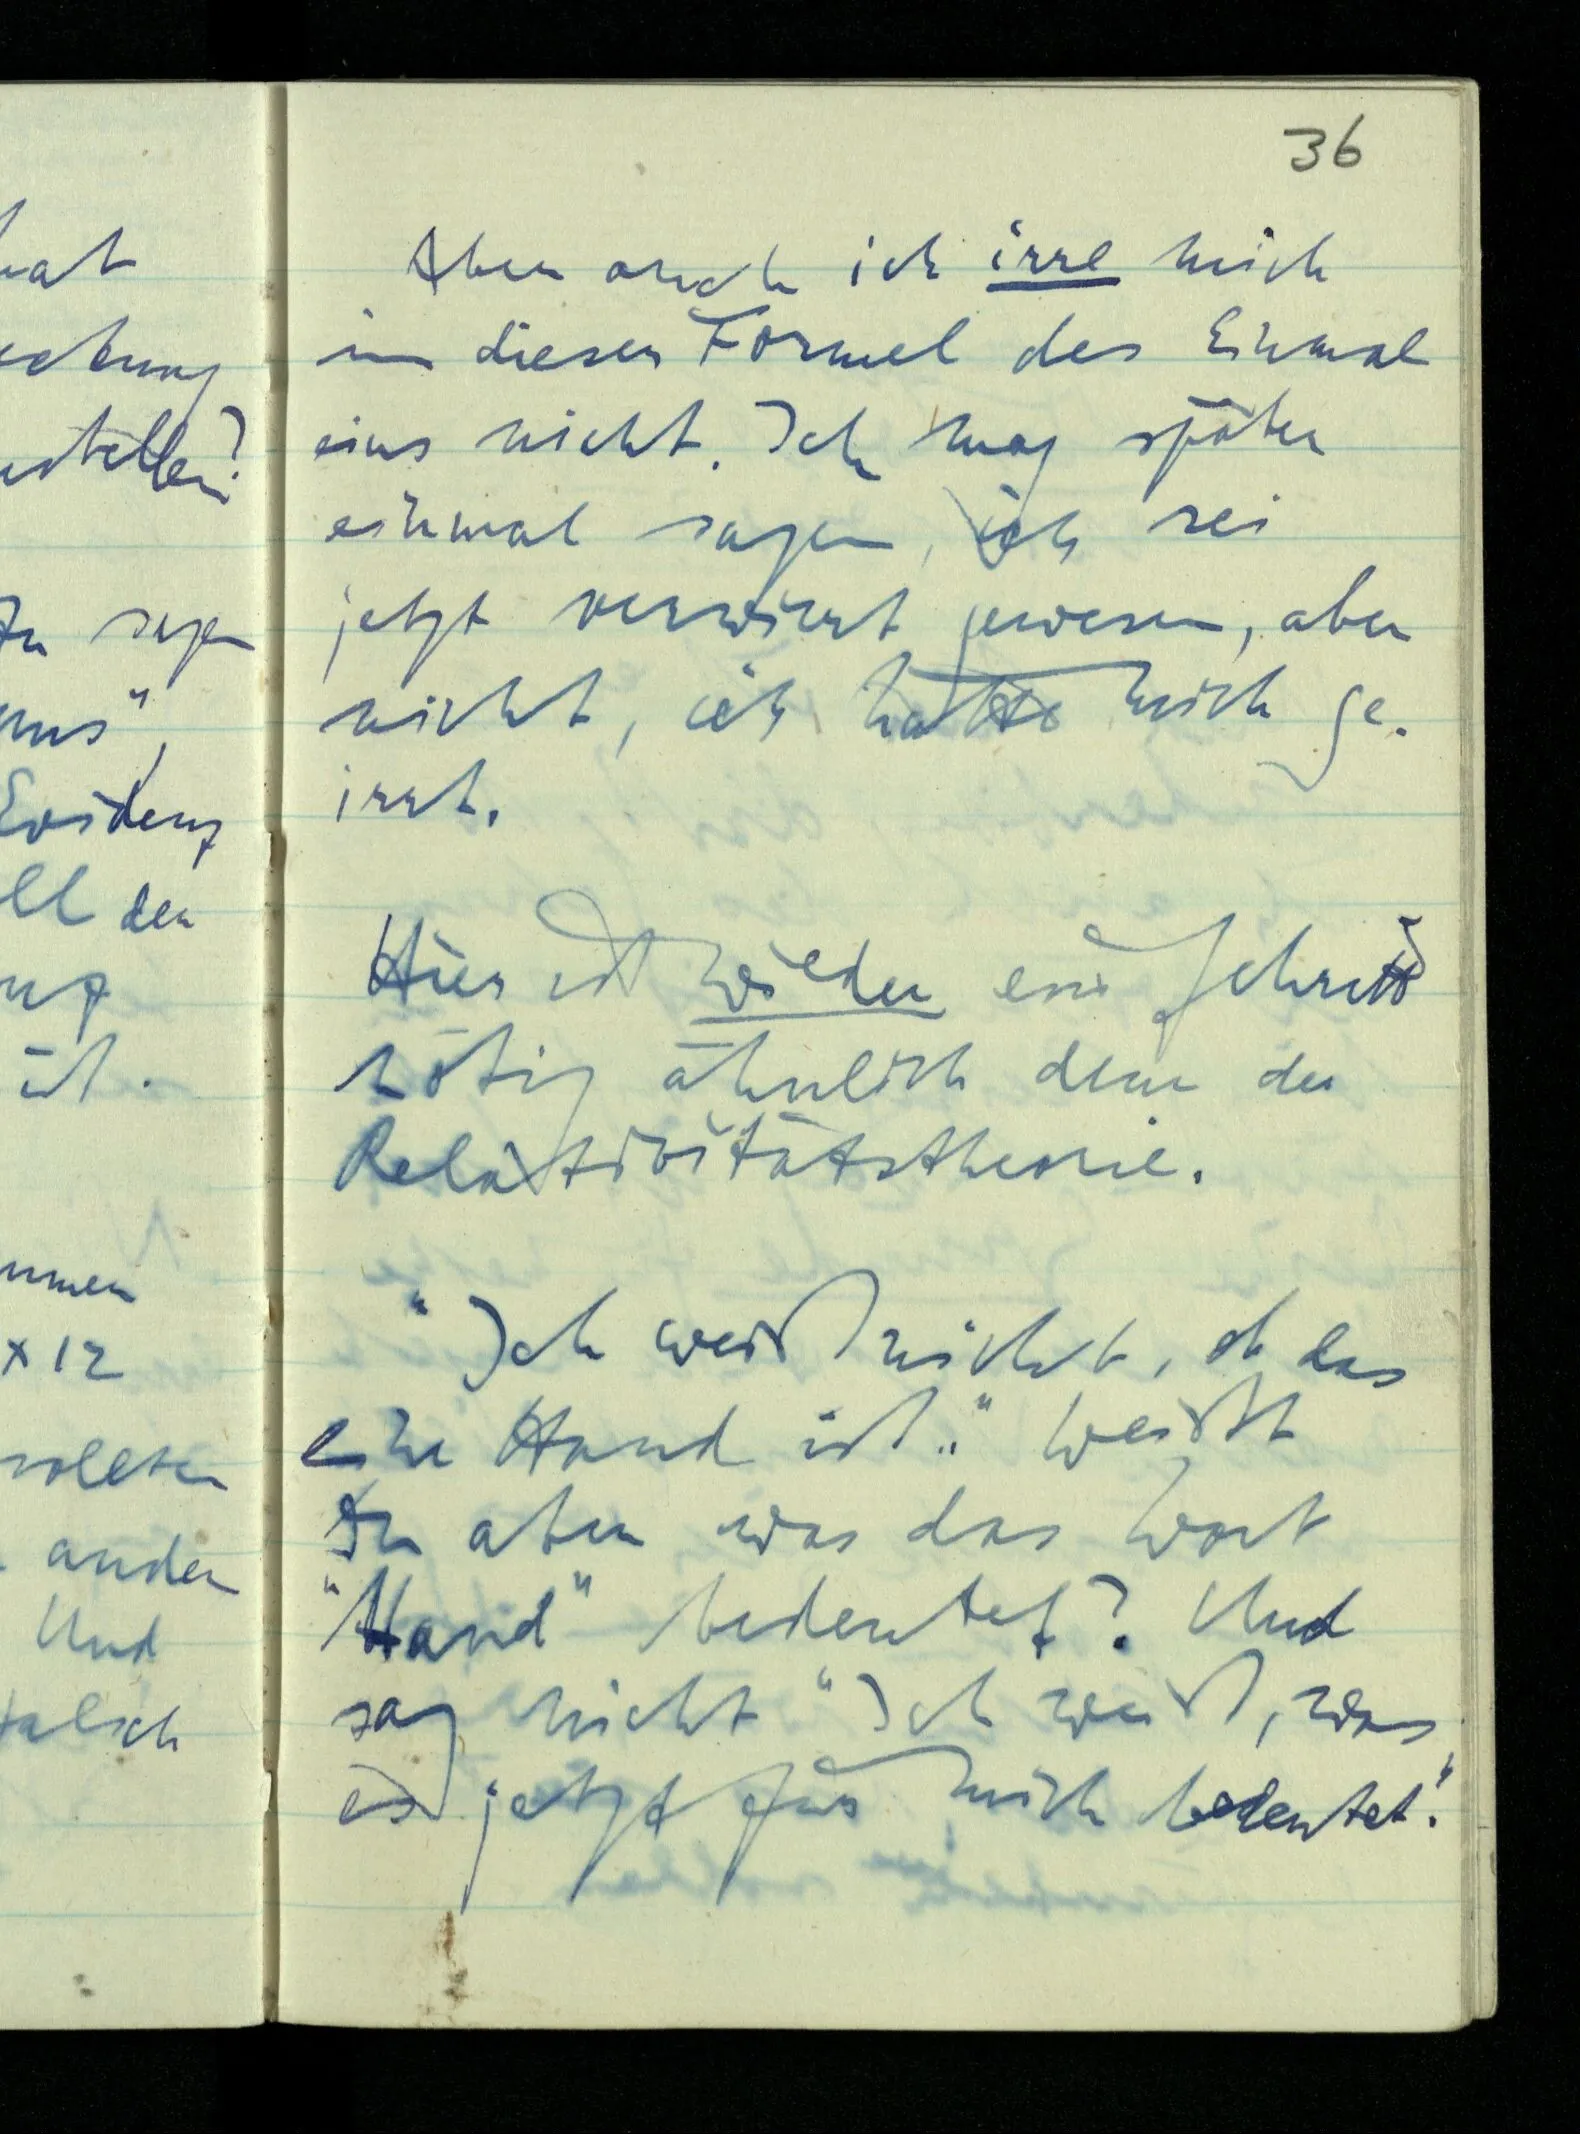 36
Aber auch ich irre mich
in dieser Formel des Einmal
eins nicht. Ich mag später
einmal sagen, ich sei
jetzt verwirrt gewesen, aber
nicht, ich hätte mich ge-
irrt.
Hier ist wieder ein Schritt
nötig ähnlich dem der
Relativitätstheorie.
"Ich weiß nicht, ob das
eine Hand ist." Weißt
Du aber was das Wort
"Hand" bedeutet? Und
sag nicht "Ich weiß, was
es jetzt für mich bedeutet".
hat
stellen?
zu sagen
uns",
Evidenz
ll der
ist.
mmen
x 12
sollten
ander
Und